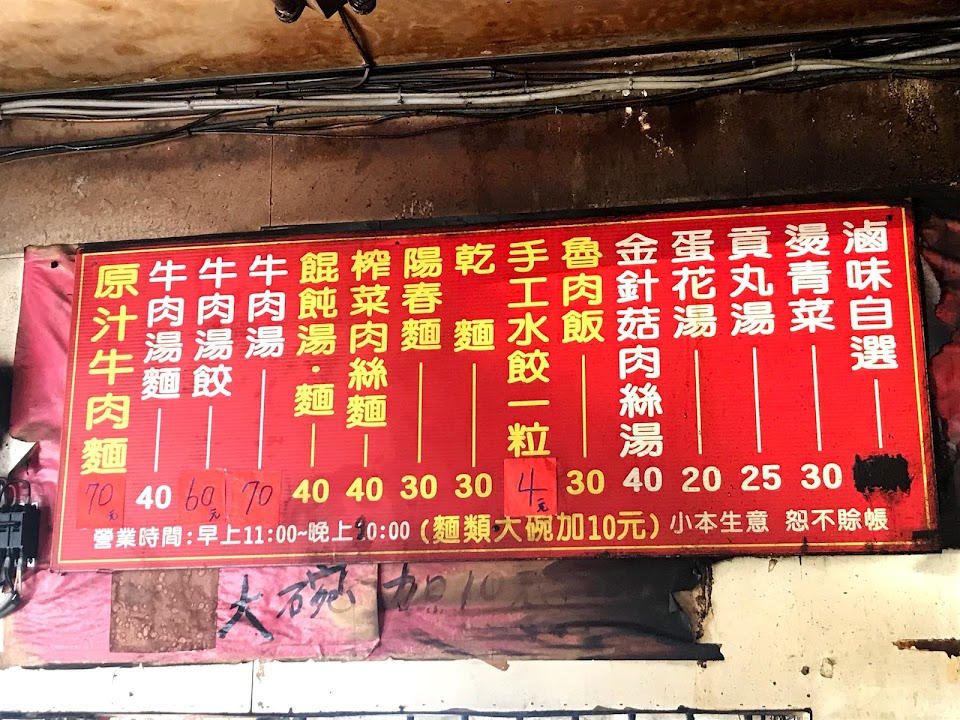 原汁牛肉麵 70元
牛肉湯麵 40
牛肉湯餃 60元
牛肉湯 70
餛飩湯·麵 40
榨菜肉絲麵 40
陽春麵 30
乾麵 30
手工水餃一粒 4元
魯肉飯 30
金針菇肉絲湯 40
蛋花湯 20
貢丸湯 25
燙青菜 30
滷味自選
營業時間:早上11:00~晚上 0:00 (麵類大碗加10元) 小本生意 恕不賒帳
大碗加10元